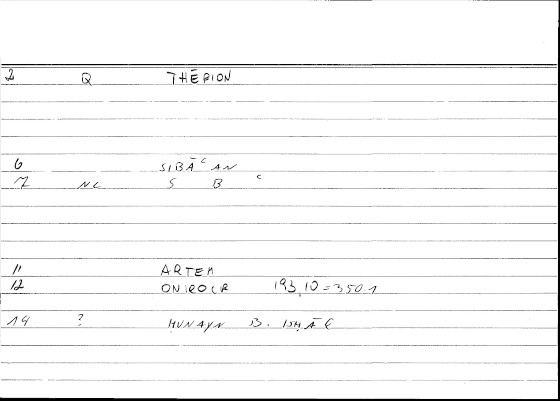 2 Q THĒRION
6 SIBĀᶜAN
7 NC S B ᶜ
11 ARTEM
12 ONIROCR 193,10=350.1
14 ? HUNAYN B. ISḤĀ